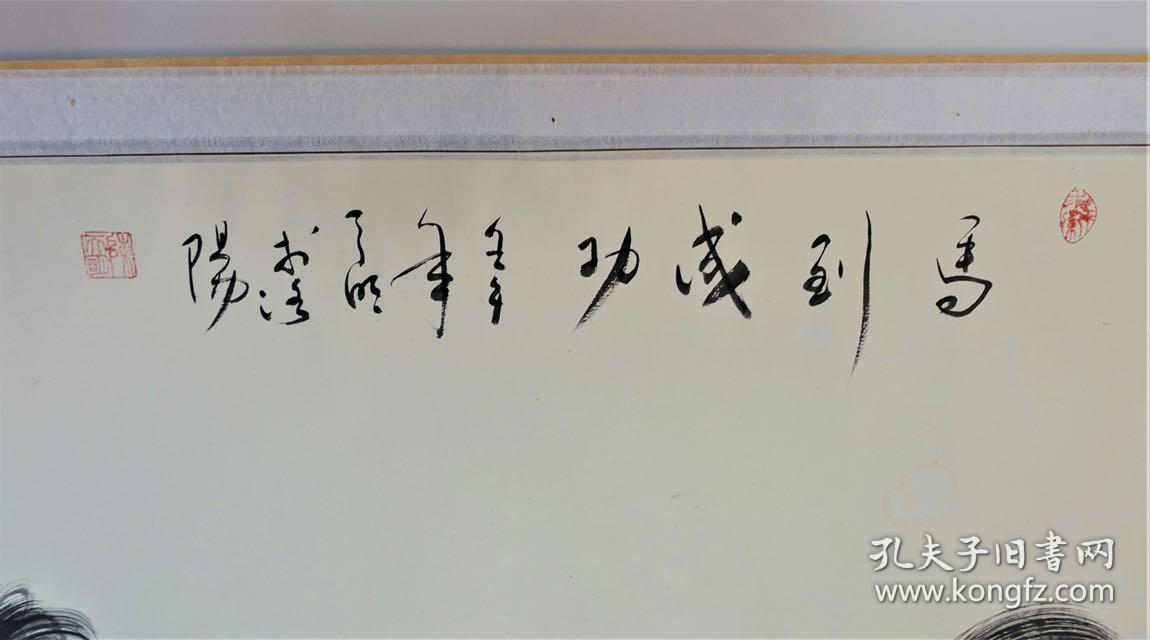 馬到成功
壬午年
於洛陽
孔夫子旧書网
www.kongfz.com